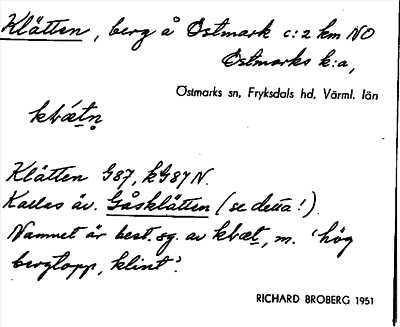 Klätten, berg å Östmark c:2 km NO
Östmarks k:a,
Östmarks sn, Fryksdals hd, Värml. län
Klätten G87, kG87N.
Kallas äv. Gåsklätten (se detta!).
Namnet är best. sg. av klæt, m. 'hög
bergtopp, klint'.
RICHARD BROBERG 1951